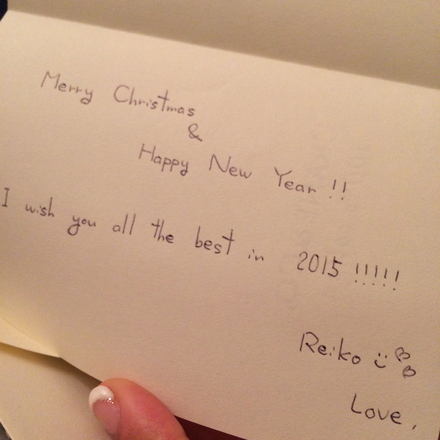 Merry Christmas
&
Happy New Year !!
I wish you all the best in 2015 !!!!!
Reiko ü ♡♡
Love,